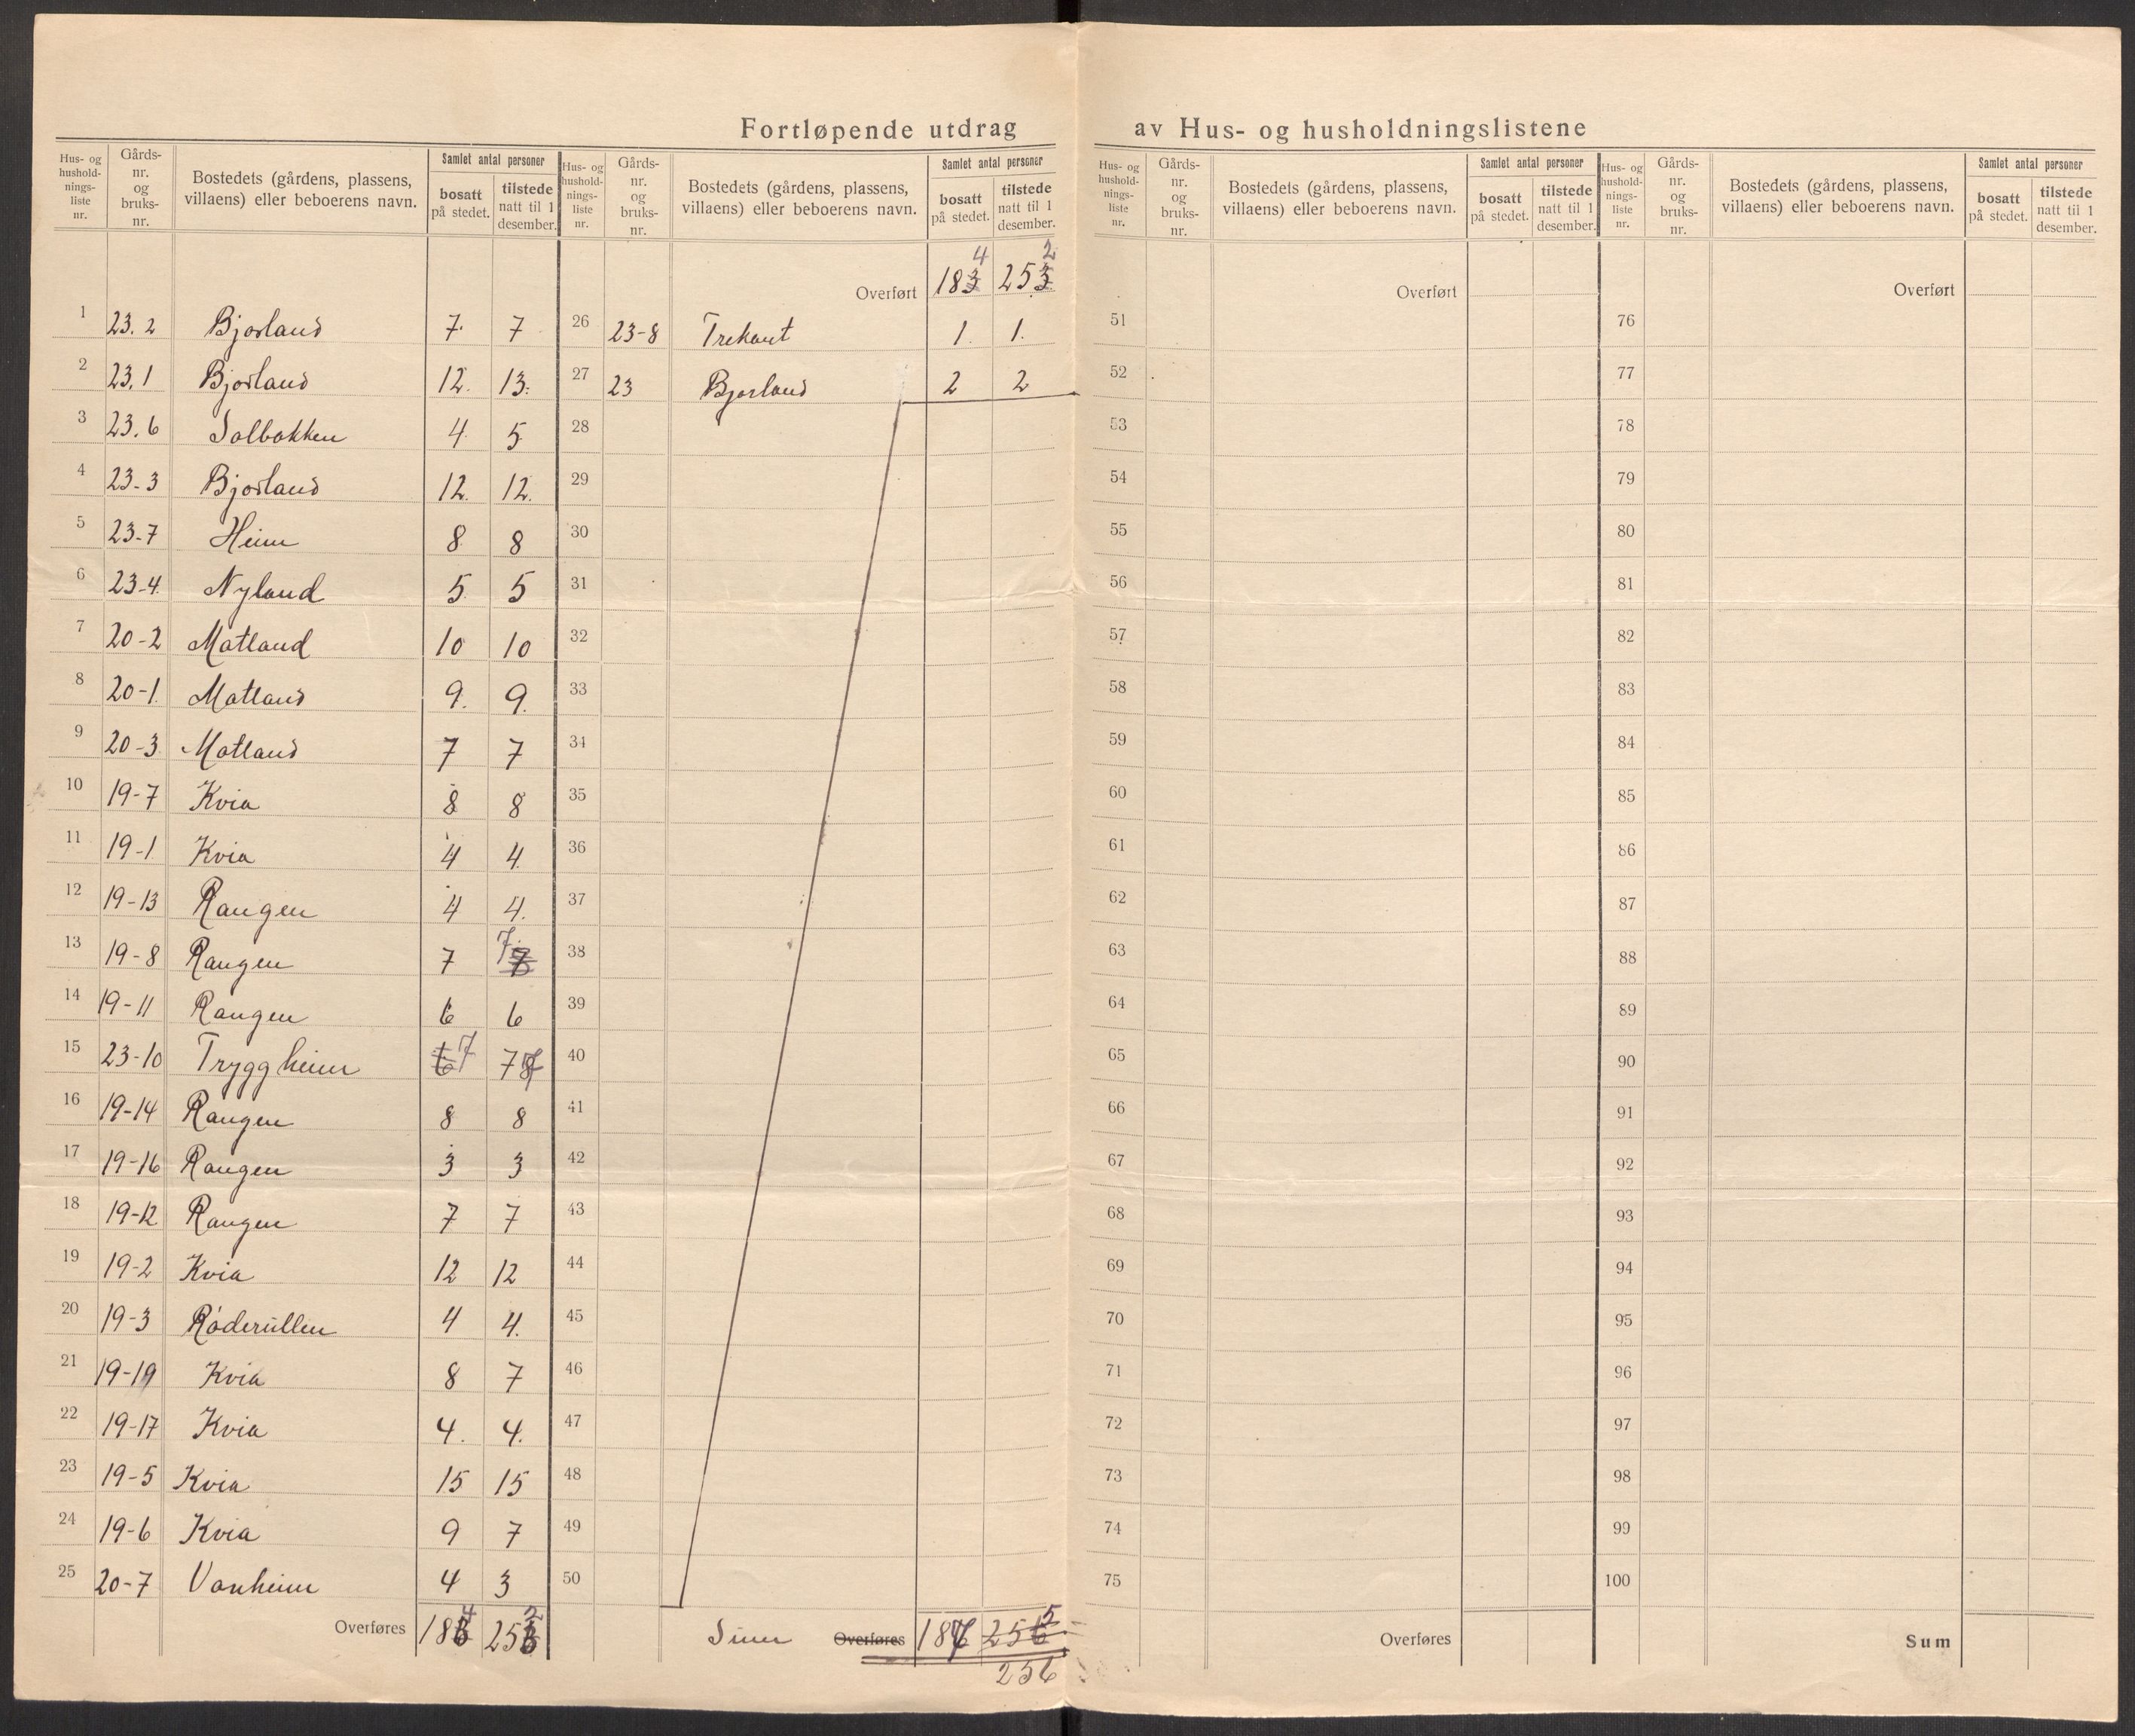 Fortløpende utdrag av Hus- og husholdningslistene
Hus- og hushold- nings- liste nr. Gårds- nr. og bruks- nr. Bostedets (gårdens, plassens, villaens) eller beboerens navn. Samlet antal personer bosatt på stedet. tilstede natt til 1 desember.
1 23.2 Bjorland 7 7
2 23.1 Bjorland 12. 13.
3 23.6 Solbakken 4 5
4 23-3 Bjorland 12. 12.
5 23-7 Heim 8 8
6 23-4 Nyland 5 5
7 20-2 Matland 10 10
8 20-1 Matland 9. 9.
9 20-3 Matland 7 7
10 19-7 Kvia 8 8
11 19-1 Kvia 4 4
12 19-13 Raugen 4 4.
13 19-8 Raugen 7 7
14 19-11 Raugen 6 6
15 23-10 Tryggheim 6 7 7
16 19-14 Raugen 8 8
17 19-16 Raugen 3 3
18 19-12 Raugen 7 7
19 19-2 Kvia 12 12
20 19-3 4 4.
21 19-19 Kvia 8 7
22 19-17 Kvia 4. 4.
23 19-5 Kvia 15 15
24 19-6 Kvia 9 7
25 20-7 Vonheim 4 3
Overføres 184 252
Hus- og hushold- nings- liste nr. Gårds- nr. og bruks- nr. Bostedets (gårdens, plassens, villaens) eller beboerens navn. Samlet antal personer bosatt på stedet. tilstede natt til 1 desember.
4 2
Overført 183 253
26 23-8 Trekant 1. 1.
27 23 Bjorland 2 2
28
29
30
31
32
33
34
35
36
37
38
39
40
41
42
43
44
45
46
47
48
49
50
Sum Overføres 187 256 5
256
Hus- og hushold- nings- liste nr. Gårds- nr. og bruks- nr. Bostedets (gårdens, plassens, villaens) eller beboerens navn. Samlet antal personer bosatt på stedet. tilstede natt til 1 desember.
Overført
51
52
53
54
55
56
57
58
59
60
61
62
63
64
65
66
67
68
69
70
71
72
73
74
75
Overføres
Hus- og hushold- nings- liste nr. Gårds- nr. og bruks- nr. Bostedets (gårdens, plassens, villaens) eller beboerens navn. Samlet antal personer bosatt på stedet. tilstede natt til 1 desember.
Overført
76
77
78
79
80
81
82
83
84
85
86
87
88
89
90
91
92
93
94
95
96
97
98
99
100
Sum